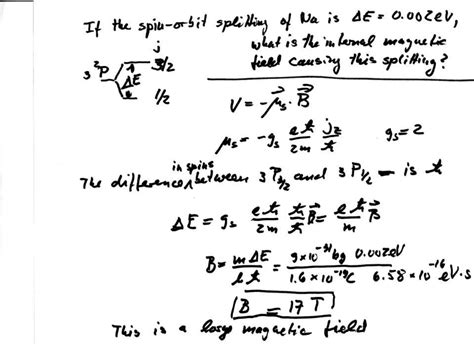 If the spin-orbit splitting of Na is ΔE = 0.002eV,
what is the internal magnetic
field causing this splitting?
j
3 ²P 3/2
ΔE
1/2
V = -μ⃗s · B⃗
μs = -gs eħ/2m jz/ħ gs = 2
in spins
The difference between 3 P3/2 and 3 P1/2 – is ħ
ΔE = gs eħ/2m ħ/ħ B⃗ = eħ/m B⃗
B = mΔE/eħ = 9×10⁻³¹kg 0.002eV / 1.6×10⁻¹⁹C 6.58×10⁻¹⁶ eV·s
B = 17 T
This is a large magnetic field